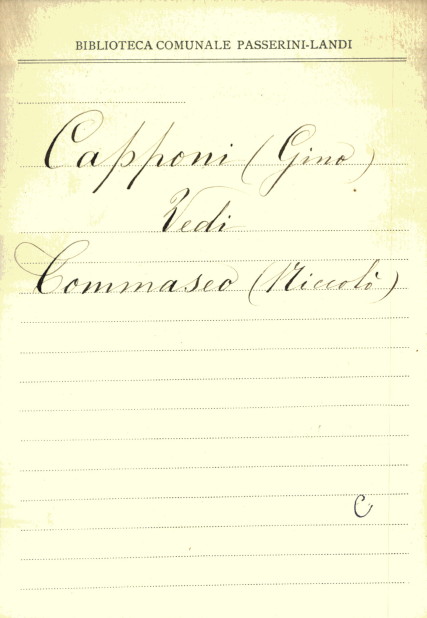 BIBLIOTECA COMUNALE PASSERINI-LANDI
Capponi (Gino)
Vedi
Tommaseo (Niccolò)
C